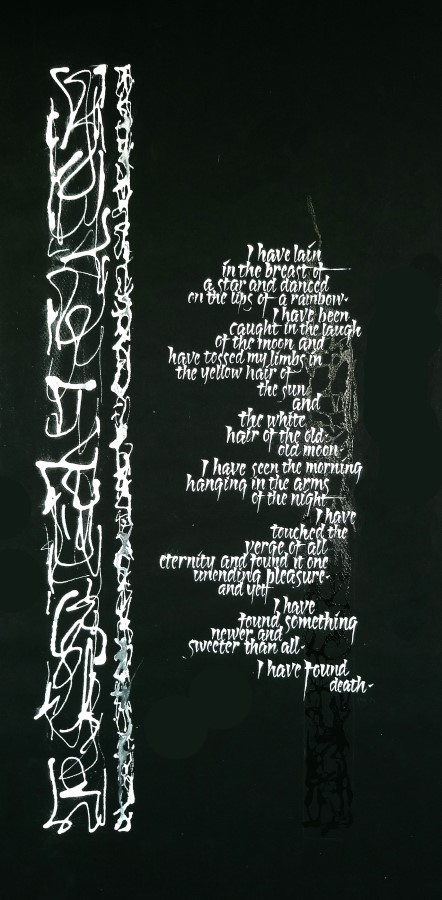 I have lain
in the breast of
a star and danced
on the lips of a rainbow-
I have been
caught in the laugh
of the moon and
have tossed my limbs in
the yellow hair of
the sun
and
the white
hair of the old-
old moon-
I have seen the morning
hanging in the arms
of the night
I have
touched the
verge of all
eternity and found it one
unending pleasure-
and yet
I have
found something
newer and
sweeter than all-
I have found
death-